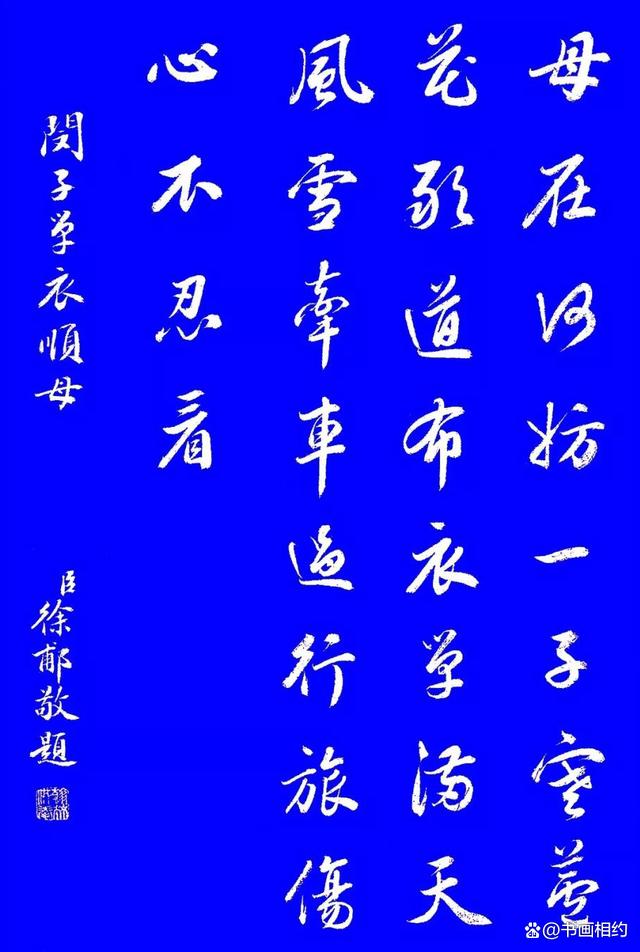 母在何妨一子寒蘆
花敢道布衣单滿天
風雪牽車過行旅傷
心不忍看
閔子单衣順母
臣徐郙敬題
@书画相约